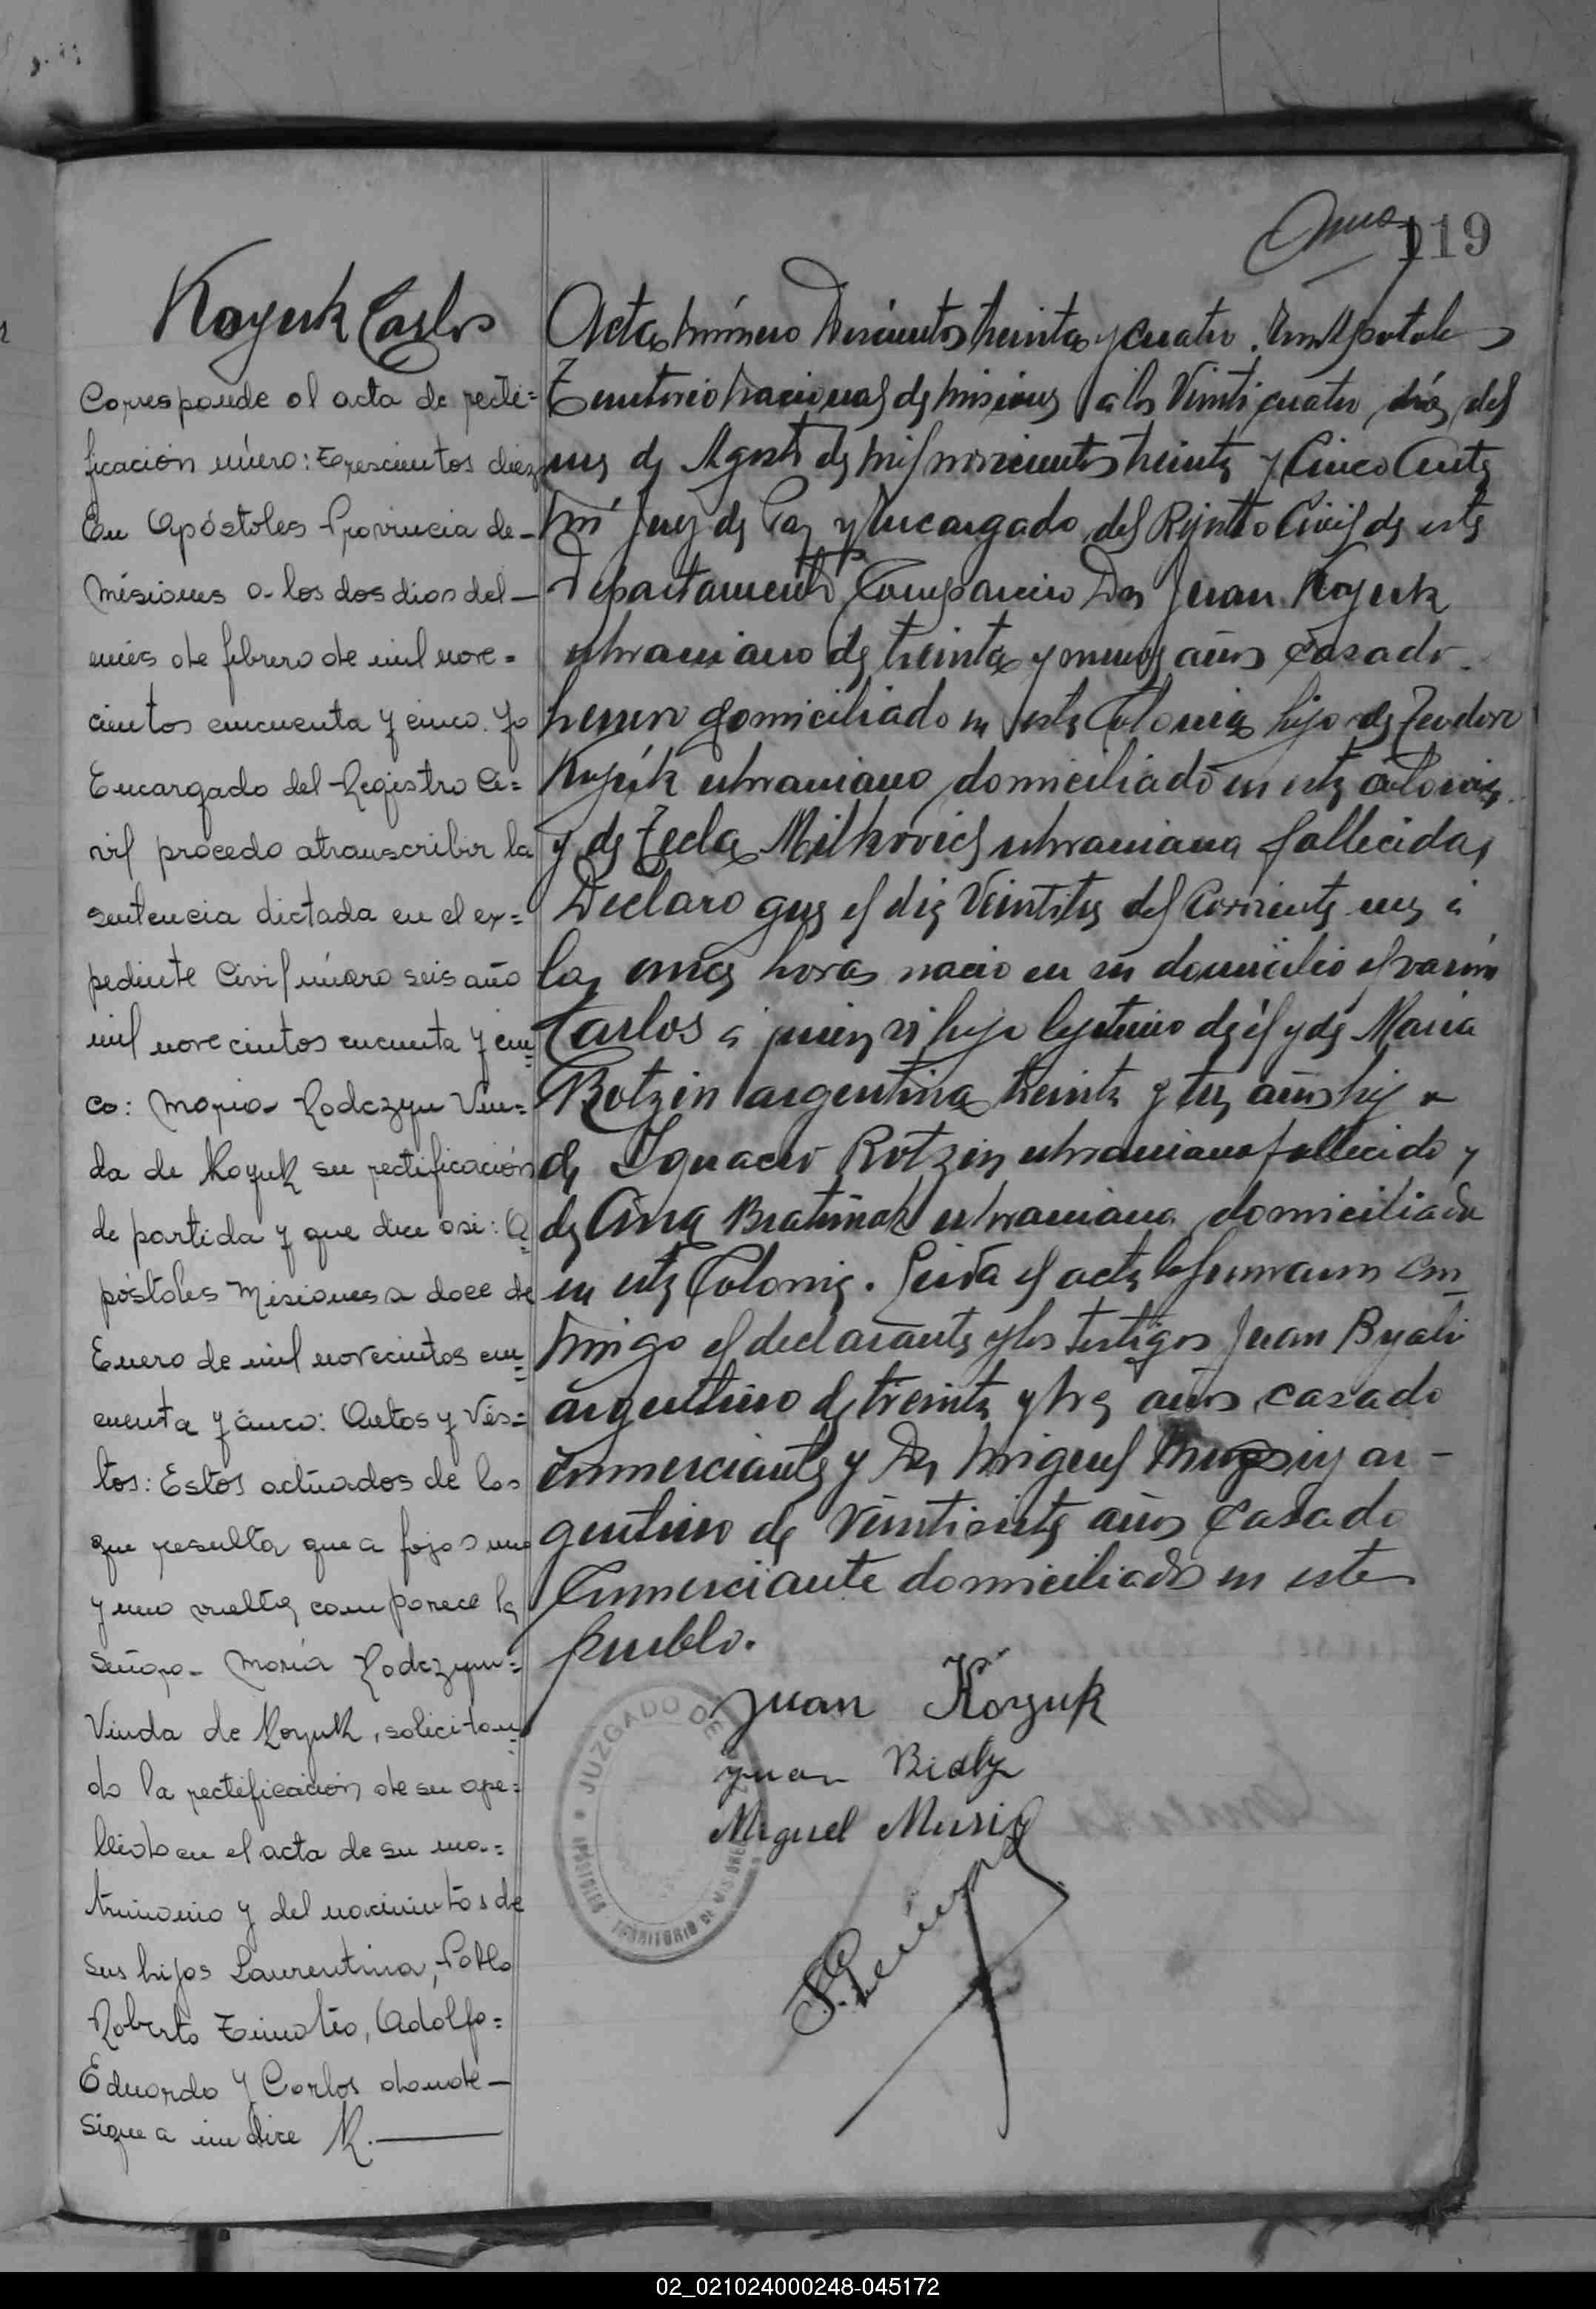 119
Kozuk Carlos
Corresponde al acta de recti=
ficación número: Trescientos diez
En Apóstoles Provincia de-
Misiones a los dos dias del-
mes de febrero de mil nove=
cientos cincuenta y cinco. Yo
Encargado del Registro Ci=
vil procedo atranscribir la
sentencia dictada en el ex=
pediente Civil número seis año
mil novecientos cincuenta y cin=
co: Maria Rodczyn Viu=
da de Kozuk su rectificación
de partida y que dice asi: A=
póstoles Misiones a doce de
Enero de mil novecientos cin=
cuenta y cinco: Autos y Vis=
tos: Estos actuados de los
que resulta que a fojas uno
y uno vuelta comparece la
Señora- María Rodczyn=
Viuda de Kozuk, solicitan=
do la rectificación de su ape=
llido en el acta de su ma=
trimonio y del nacimientos de
sus hijos Laurentina, Pablo
Roberto Timoteo, Adolfo=
Eduardo y Carlos donde-
Sigue a indice K.-
Acta número Doscientos treinta y cuatro. En Apostoles
Territorio nacional de misiones a los Veinticuatro dias del
mes de Agosto de mil novecientos treinta y Cinco Ante
mi Juez de Paz y Encargado del Rejistro Civil de este
Departamento, Comparecio Don Juan Kozuk
ukraniano de treinta y nueve años casado
herrero domiciliado en esta Colonia hijo de Teodoro
Kozuk ukraniano domiciliado en esta colonia
y de Tecla Milkovich ukraniana fallecida,
Declaro que el dia Veintitres del Corriente mes a
las once horas nacio en su domicilio el varon
Carlos a quien es hijo lejitimo de él y de Maria
Rotzen argentina treinta y tres años hija
de Ignacio Rotzen ukraniano fallecido y
de Ana ukraniana domiciliada
en esta Colonia. Leida el acta la firmaron con-
migo el declarante y los testigos Juan Byali
argentino de treinta y tres años casado
comerciante y Don Miguel ar-
gentino de Veintisiete años casado
Comerciante domiciliados en este
pueblo.
Juan Kozuk
Juan Bialy
Miguel Musi
JUZGADO DE
APOSTOLES TERRITORIO DE MISIONES
02_021024000248-045172